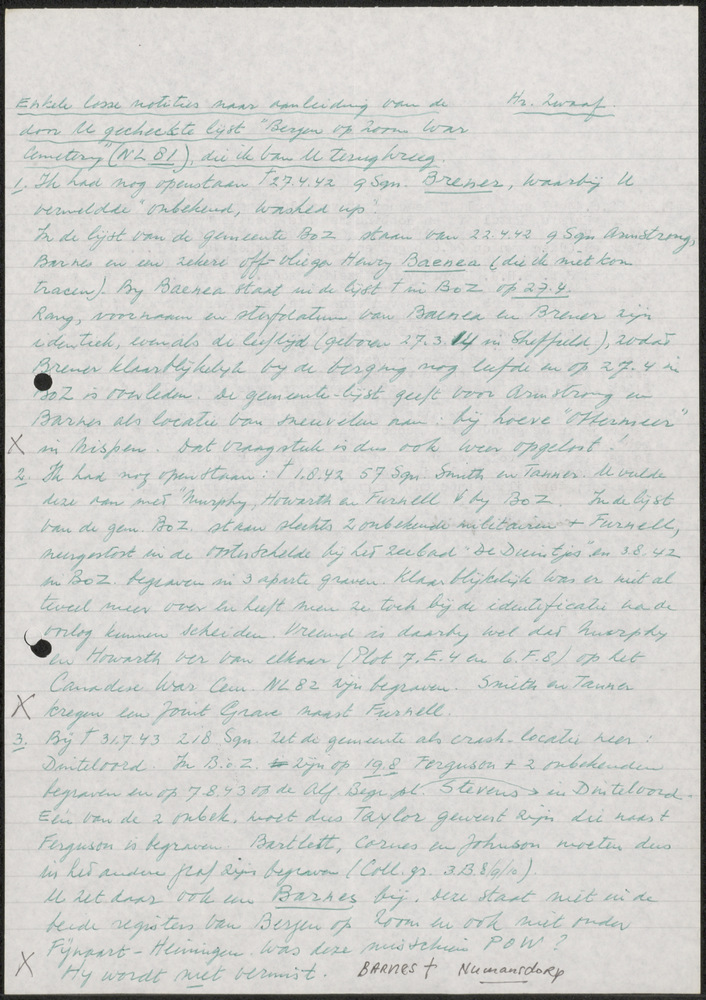 Enkele losse notities naar aanleiding van de Hr. Zwaaf.
door U gecheckte lijst "Bergen op Zoom War
Cemetery" (NL 81), die ik van U terugkreeg.
1. Ik had nog openstaan †27.4.42 9 Sqn. Brener, waarbij U
vermeldde "onbekend, washed up".
In de lijst van de gemeente BoZ staan van 22.4.42 9 Sqn Armstrong,
Barnes en een zekere off-vlieger Henry Baenea (die ik niet kon
tracen). By Baenea staat in de lijst † in BoZ op 27.4.
Rang, voornaam en sterfdatum van Baenea en Brener zijn
identiek, evenals de leeftijd (geboren 27.3.14 in Sheffield), zodat
Brener klaarblijkelijk by de berging nog leefde en op 27.4 in
BoZ is overleden. De gemeente-lijst geeft voor Armstrong en
Barnes als locatie van sneuvelen aan: bij hoeve "Ottermeer"
X in Nispen. Dat vraagstuk is dus ook weer opgelost!
2. Ik had nog openstaan: † 1.8.42 57 Sqn. Smith en Tanner. U vulde
deze aan met Murphy, Howarth en Furnell by BoZ. In de lijst
van de gem. BoZ. staan slechts 2 onbekende militairen + Furnell,
neergestort in de Oosterschelde bij het zeebad "De Duintjes" en 3.8.42
in BoZ. begraven in 3 aparte graven. Klaarblijkelijk was er niet al
teveel meer over en heeft men ze toch bij de identificatie na de
oorlog kunnen scheiden. Vreemd is daarby wel dat Murphy
en Howarth ver van elkaar (Plot 7.E.4 en 6.F.8) op het
Canadese War Cem. NL 82 zijn begraven. Smith en Tanner
X kregen een Joint Grave naast Furnell.
3. Bij † 31.7.43 218 Sqn. zet de gemeente als crash-locatie neer:
Dinteloord. In B.o.Z. zijn op 19.8 Ferguson + 2 onbekenden
begraven en op 7.8.43 op de Alg. Begr. pl. Stevens → in Dinteloord.
Een van de 2 onbek. moet dus Taylor geweest zijn die naast
Ferguson is begraven. Bartlett, Carnes en Johnson moeten dus
in het andere graf zijn begraven (Coll. gr. 3.B.8/9/10).
U zet daar ook een Barnes bij. Deze staat niet in de
beide registers van Bergen op Zoom en ook niet onder
Fijnaart-Heiningen. Was deze misschien POW?
X Hy wordt niet vermist. BARNES † Numansdorp